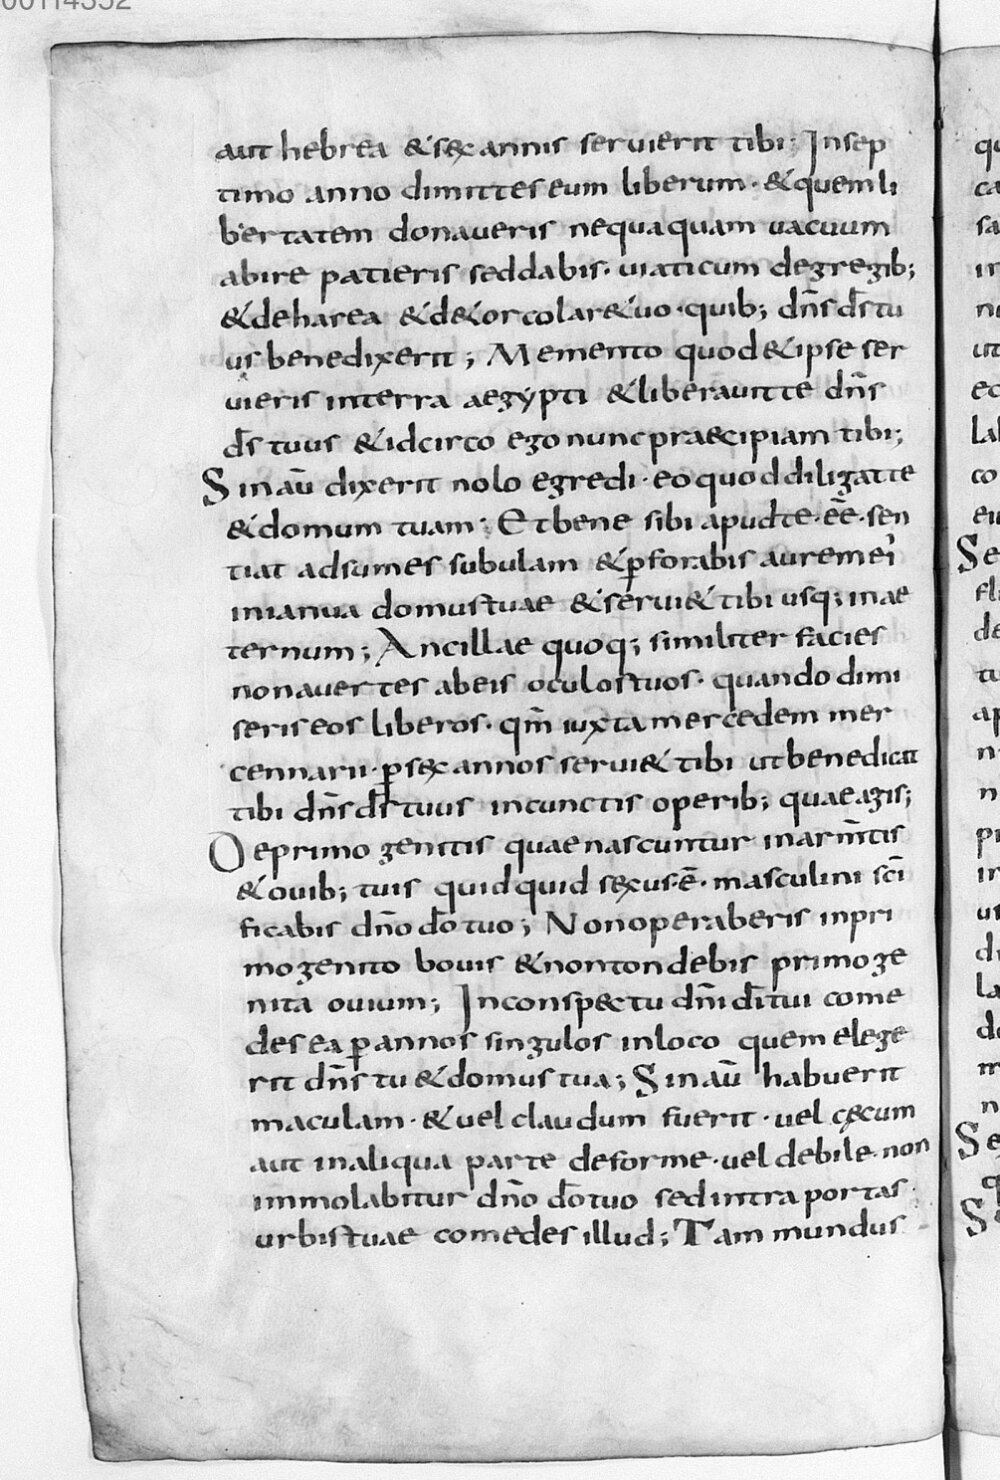 00114352
aut hebrea & sex annis seruierit tibi; In sep
timo anno dimittes eum liberum· & quem li
bertatem donaueris nequaquam uacuum
abire patieris sed dabis· uiaticum de gregib;
& de harea & de torcolari & uo· quib; dn̄s dr̄s tu
us benedixerit; Memento quod & ipse ser
uieris in terra aegypti & liberauit te dn̄s
d̄s tuus & idcirco ego nunc praecipiam tibi;
Sin aū dixerit nolo egredi· eo quod diligat te
& domum tuam; Et bene sibi apud te· ēē· sen
tiat adsumes subulam & ꝑforabis aurem ei
in ianua domus tuae & serui& tibi usq; in ae
ternum; Ancillae quoq; similiter facies
non auertes ab eis oculos tuos· quando dimi
seris eos liberos· qm̄ iuxta mercedem mer
cennarii· ꝑ sex annos serui& tibi ut benedicat
tibi dn̄s d̄s tuus in cunctis operib; quae agis;
De primogenitis quae nascuntur in arm̄tis
& ouib; tuis quidquid sexus· ē· masculini sc̄i
ficabis dn̄o d̄o tuo; Non operaberis in pri
mogenito bouis & non tondebis primoge
nita ouium; In conspectu dn̄i d̄i tui come
des ea ꝑ annos singulos in loco quem elege
rit dn̄s tu & domus tua; Sin aū habuerit
maculam· & uel claudum fuerit· uel cęcum
aut in aliqua parte deforme· uel debile· non
immolabitur dn̄o d̄o tuo sed intra portas·
urbis tuae comedes illud; Tam mundus